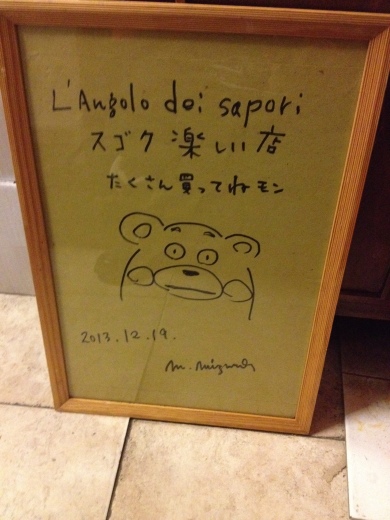 L'Angolo dei sapori
スゴク楽しい店
たくさん買ってねモン
2013.12.19.